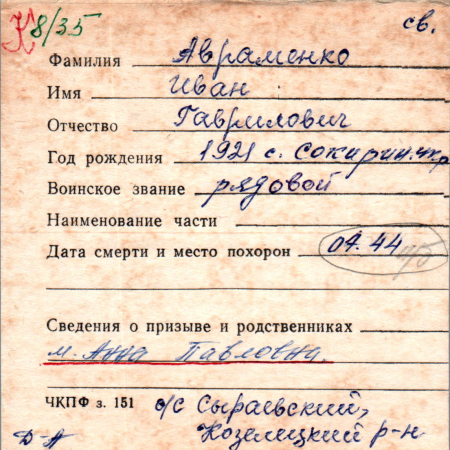 К 8/35 св.
Фамилия Авраменко
Имя Иван
Отчество Гаврилович
Год рождения 1921 с. Сокирин. чкр
Воинское звание рядовой
Наименование части
Дата смерти и место похорон 04.44 п/б
Сведения о призыве и родственниках
м. Анна Павловна.
ЧКПФ з. 151 с/С Сыраевский,
Д-А Козелецкий р-н